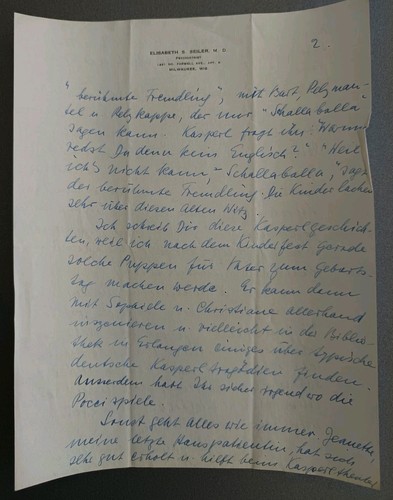 ELISABETH S. SEILER, M. D.
PSYCHIATRIST
MILWAUKEE, WIS.
2.
"berühmte Fremdling", mit Bart, Pelzman-
tel u Pelzkappe, der nur "Schallaballa"
sagen kann. Kasperl fragt ihn: "Warum
redst Du denn kein Englisch?" "Weil
ich's nicht kann," "Schallaballa", sagt
der berühmte Fremdling. Die Kinder lachen
sehr über diesen alten Witz.
Ich schreib Dir diese Kasperlgeschich-
ten, weil ich nach dem Kinderfest gerade
solche Puppen für zum Geburts-
tag machen werde. Er kann dann
mit u. Christiane allerhand
inszenieren u. vielleicht in der Biblio-
thek in Erlangen einiges über typische
deutsche Kasperltragödien finden.
Ausserdem habt Ihr sicher irgendwo die
Pocci spiele.
Sonst geht alles wie immer. Jeanette,
meine letzte Hauspatientin, hat sich
sehr gut erholt u. hilft beim Kasperltheater